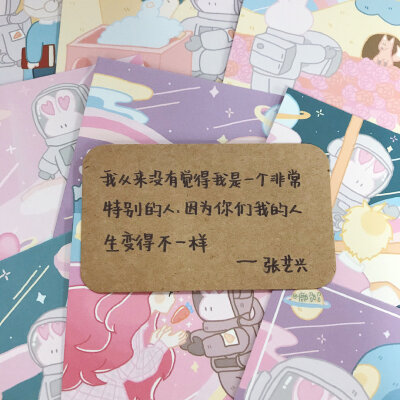 我从来没有觉得我是一个非常
特别的人.因为你们我的人
生变得不一样
——张艺兴